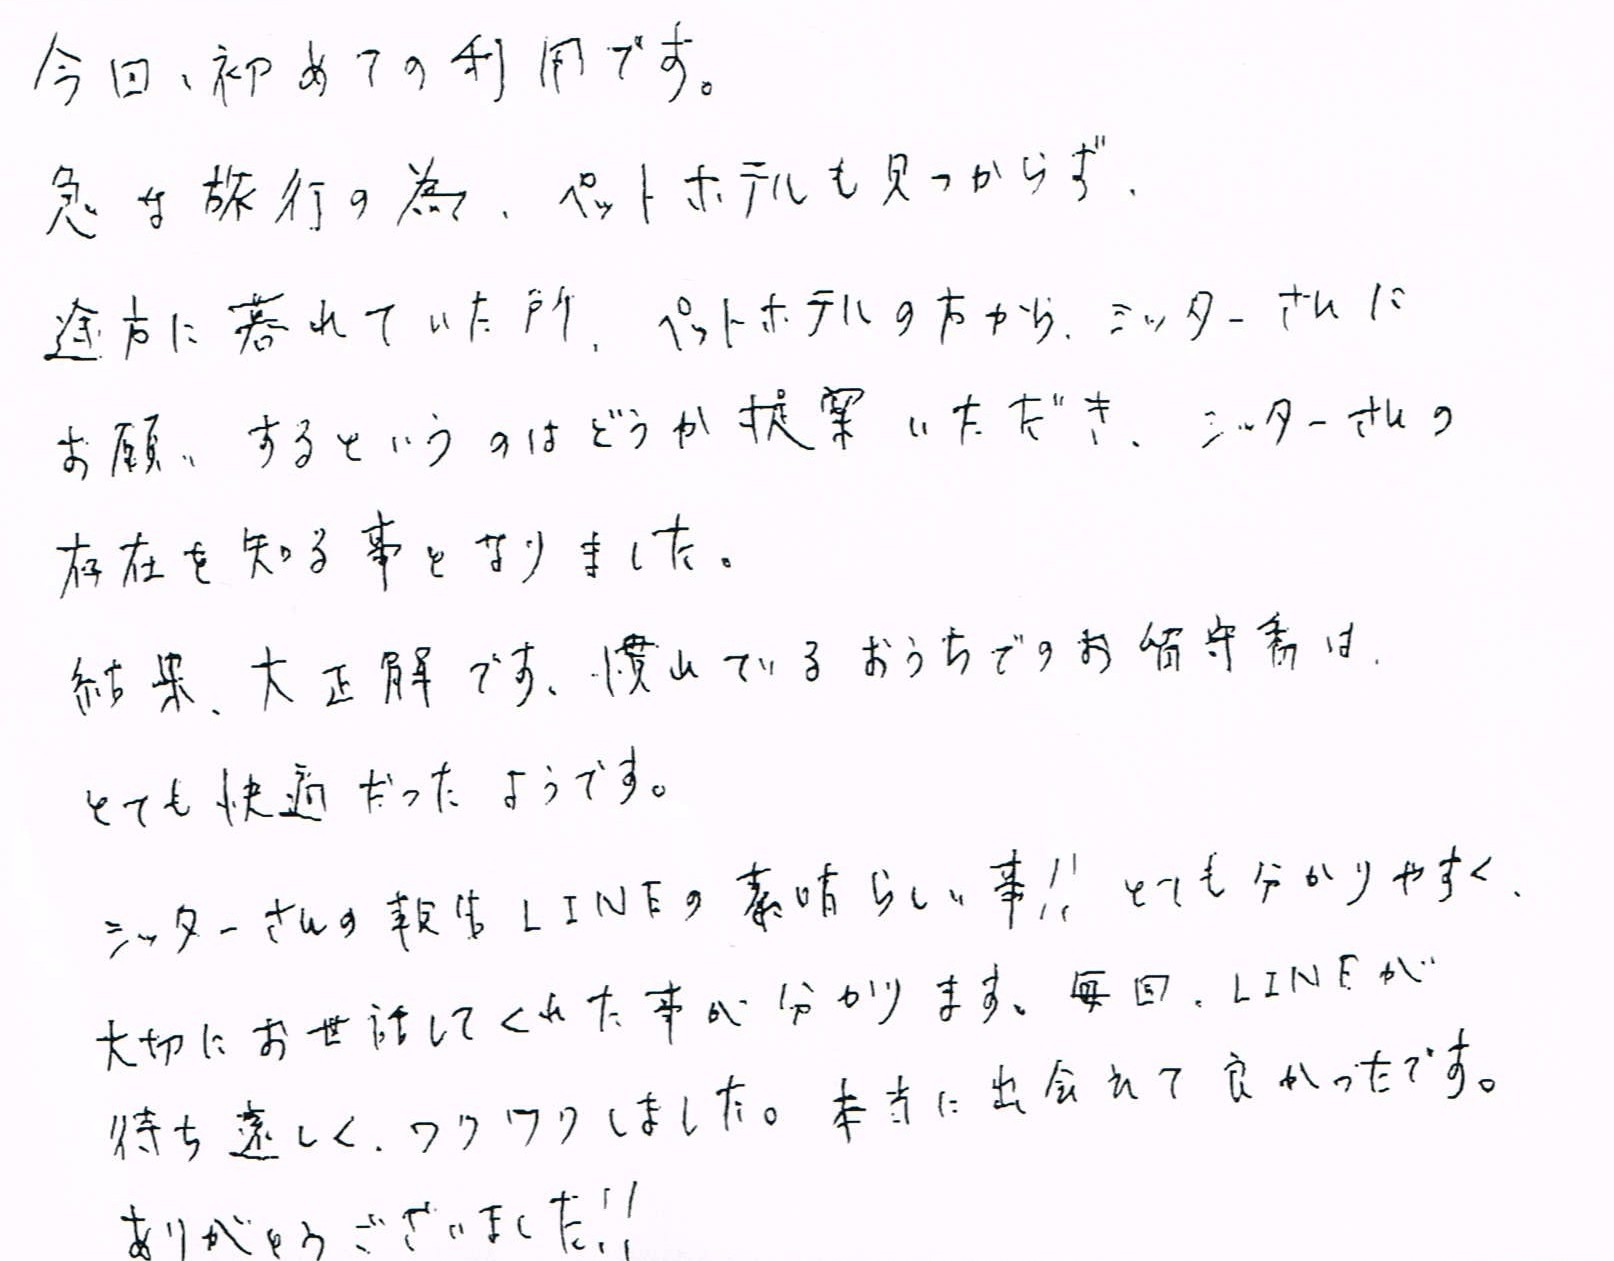 今回、初めての利用です。
急な旅行の為、ペットホテルも見つからず、
途方に暮れていた所、ペットホテルの方から、シッターさんに
お願いするというのはどうか提案いただき、シッターさんの
存在を知る事となりました。
結果、大正解です、慣れているおうちでのお留守番は、
とても快適だったようです。
シッターさんの報告LINEの素晴らしい事!!とても分かりやすく、
大切にお世話してくれた事が分かります。毎回、LINEが
待ち遠しく、ワクワクしました。本当に出会えて良かったです。
ありがとうございました!!